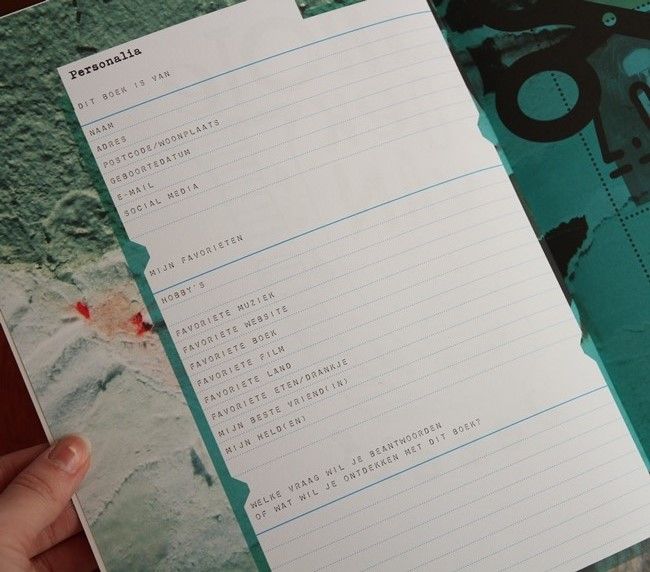 Personalia
DIT BOEK IS VAN
NAAM
ADRES
POSTCODE/WOONPLAATS
GEBOORTEDATUM
E-MAIL
SOCIAL MEDIA
MIJN FAVORIETEN
HOBBY'S
FAVORIETE MUZIEK
FAVORIETE WEBSITE
FAVORIETE BOEK
FAVORIETE FILM
FAVORIETE LAND
FAVORIETE ETEN/DRANKJE
MIJN BESTE VRIEND(IN)
MIJN HELD(EN)
WELKE VRAAG WIL JE BEANTWOORDEN
OF WAT WIL JE ONTDEKKEN MET DIT BOEK?